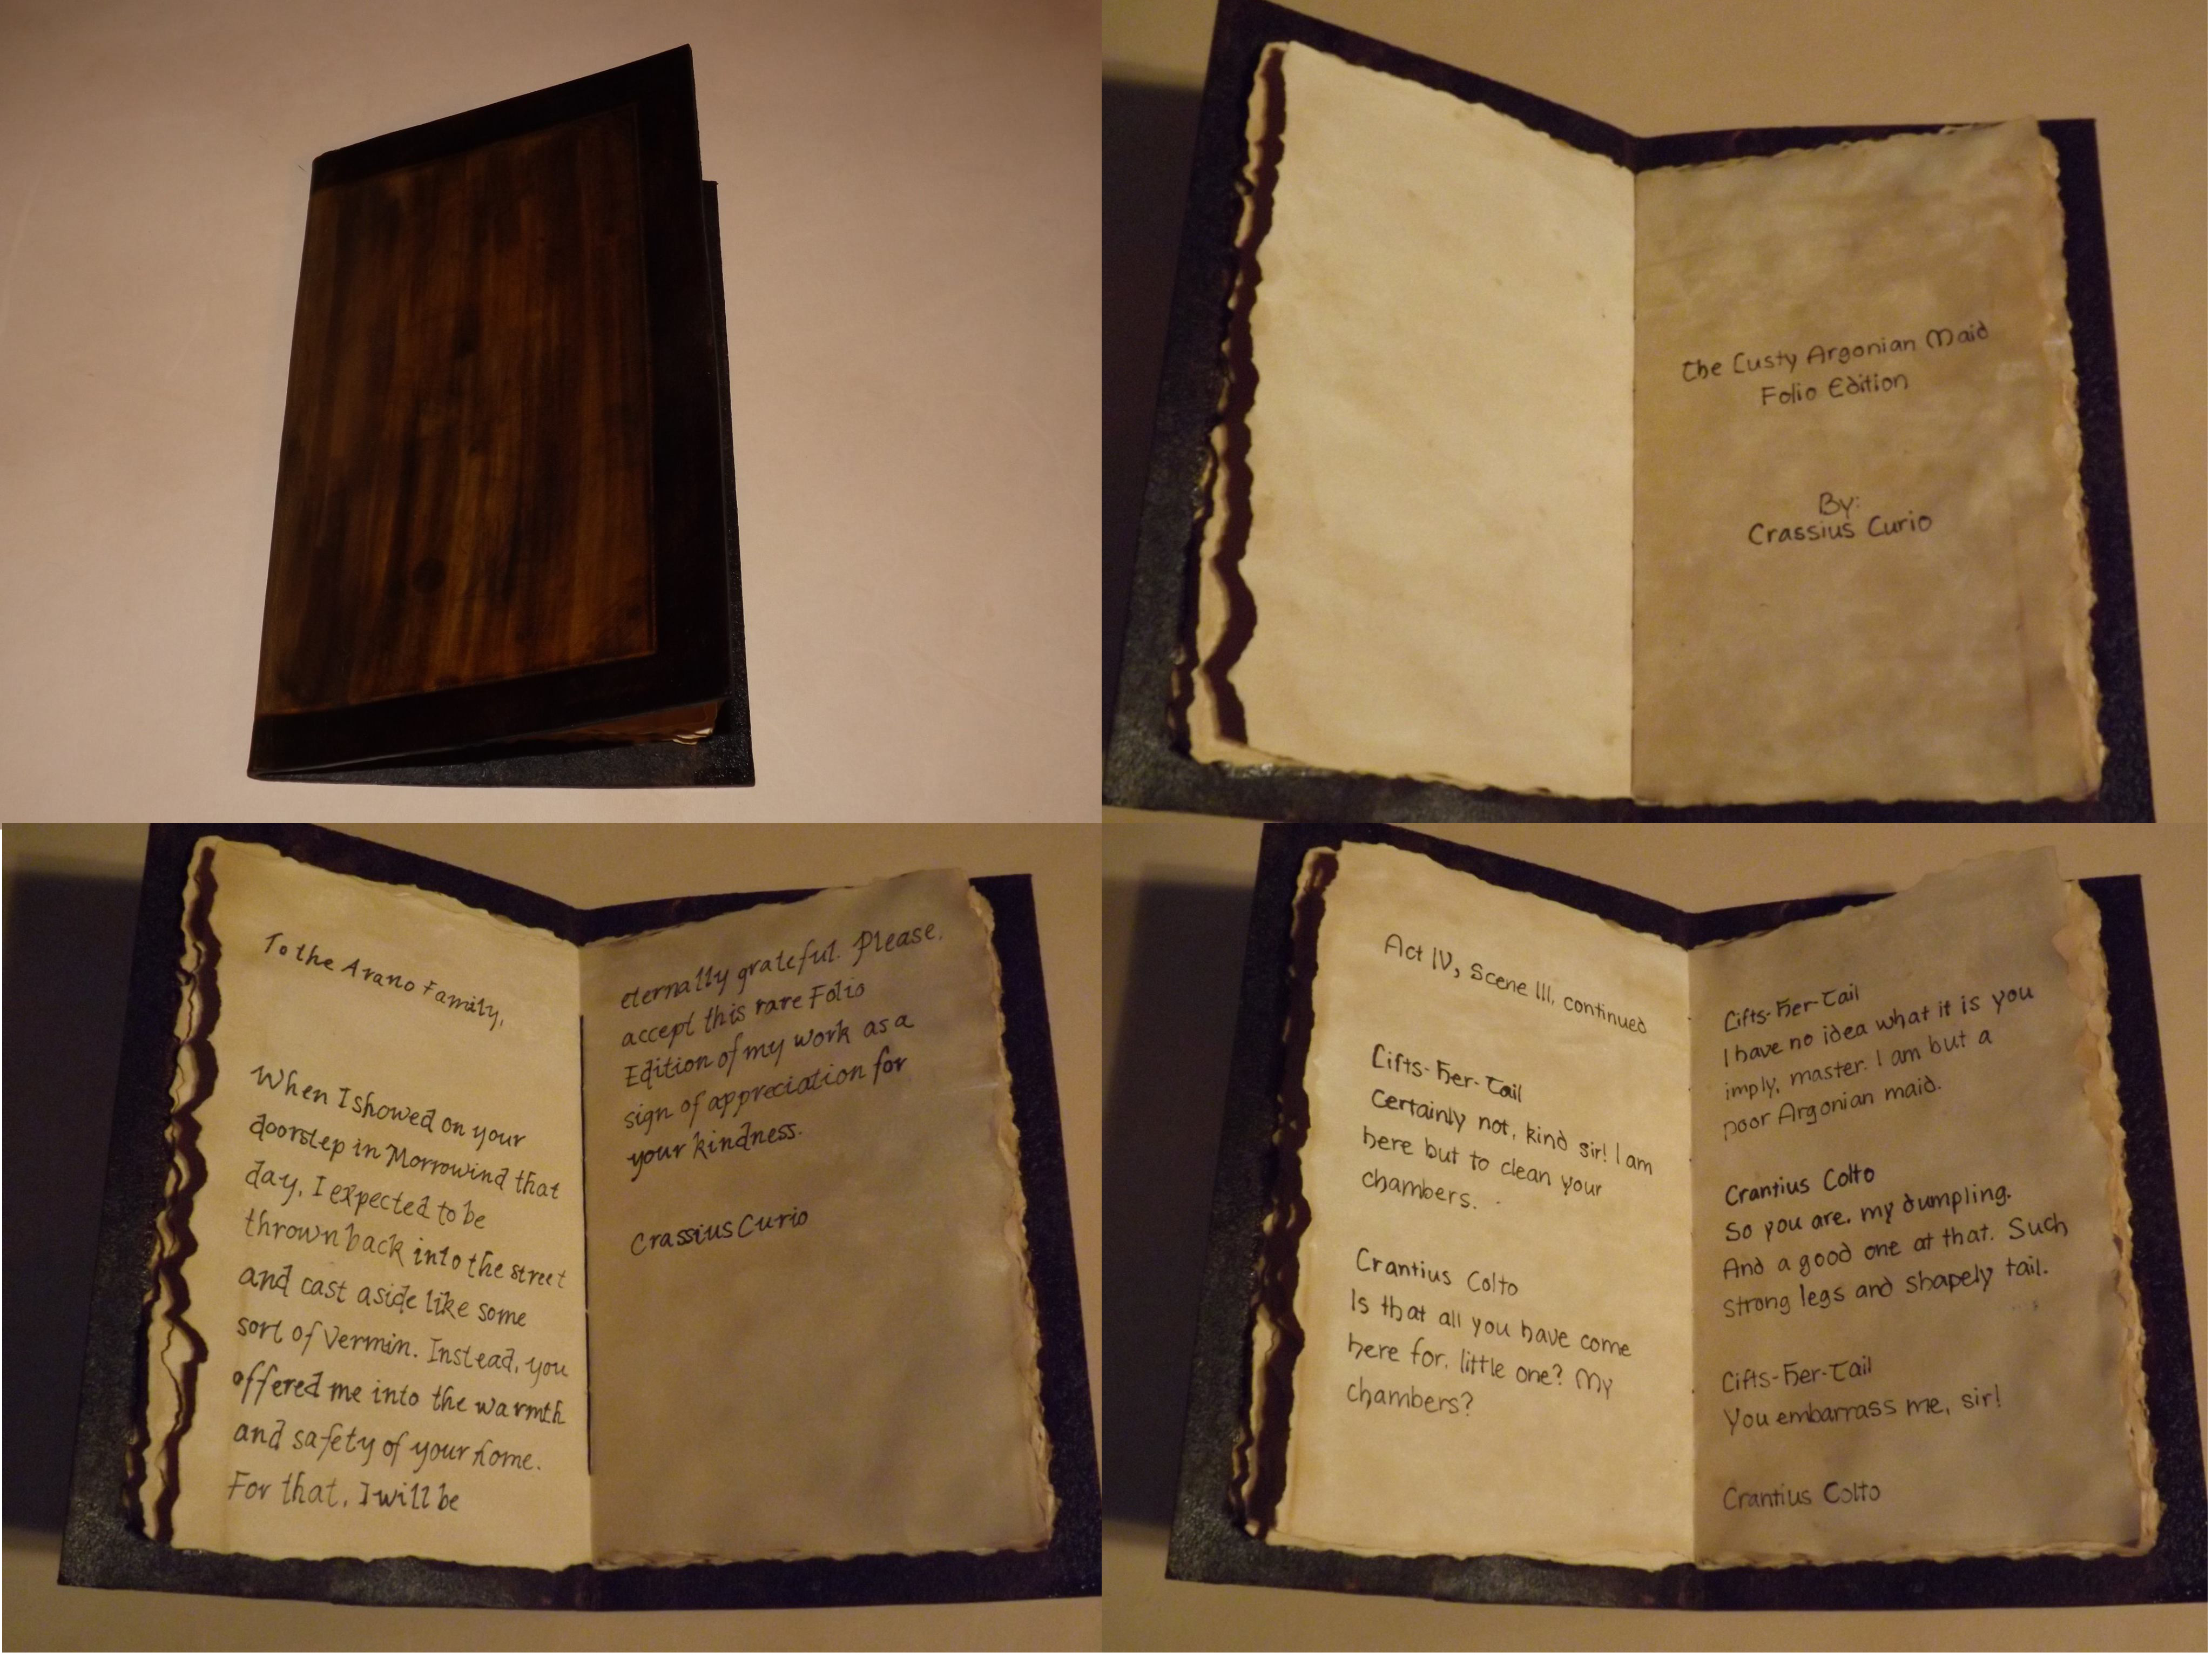 The Lusty Argonian Maid
Folio Edition
By:
Crassius Curio
To the Arano Family,
When I showed on your
doorstep in Morrowind that
day, I expected to be
thrown back into the street
and cast aside like some
sort of vermin. Instead, you
offered me into the warmth
and safety of your home.
For that, I will be
eternally grateful. Please,
accept this rare Folio
Edition of my work as a
sign of appreciation for
your kindness.
Crassius Curio
Act IV, Scene III, continued
Lifts-Her-Tail
Certainly not, kind sir! I am
here but to clean your
chambers.
Crantius Colto
Is that all you have come
here for, little one? My
chambers?
Lifts-Her-Tail
I have no idea what it is you
imply, master. I am but a
poor Argonian maid.
Crantius Colto
So you are, my dumpling.
And a good one at that. Such
strong legs and shapely tail.
Lifts-Her-Tail
You embarrass me, sir!
Crantius Colto